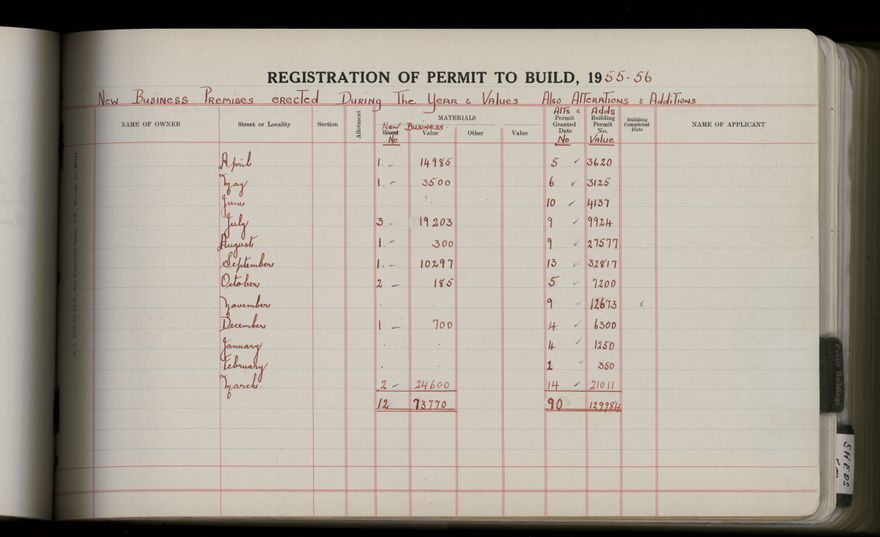 REGISTRATION OF PERMIT TO BUILD, 1955-56
New Business Premises erected During The Year & Values Also Alterations & Additions
NAME OF OWNER Street or Locality Section Allotment MATERIALS Other Value Alts & Adds Permit Granted Date Building Permit No. Building Completed Date NAME OF APPLICANT
New Business
Wood Value
No No Value
April 1 - 14985 5 ✓ 3620
May 1 - 3500 6 ✓ 3125
June . . 10 ✓ 4137
July 3 - 19203 9 ✓ 9924
August 1 - 300 9 ✓ 27577
September 1 - 10297 13 ✓ 32817
October 2 - 185 5 ✓ 7200
November . . 9 ✓ 12673
December 1 - 700 4 ✓ 6300
January . . 4 ✓ 1250
February . . 2 350
March 2 - 24600 14 ✓ 21011
12 73770 90 129984
Public Buildings
SHEDS